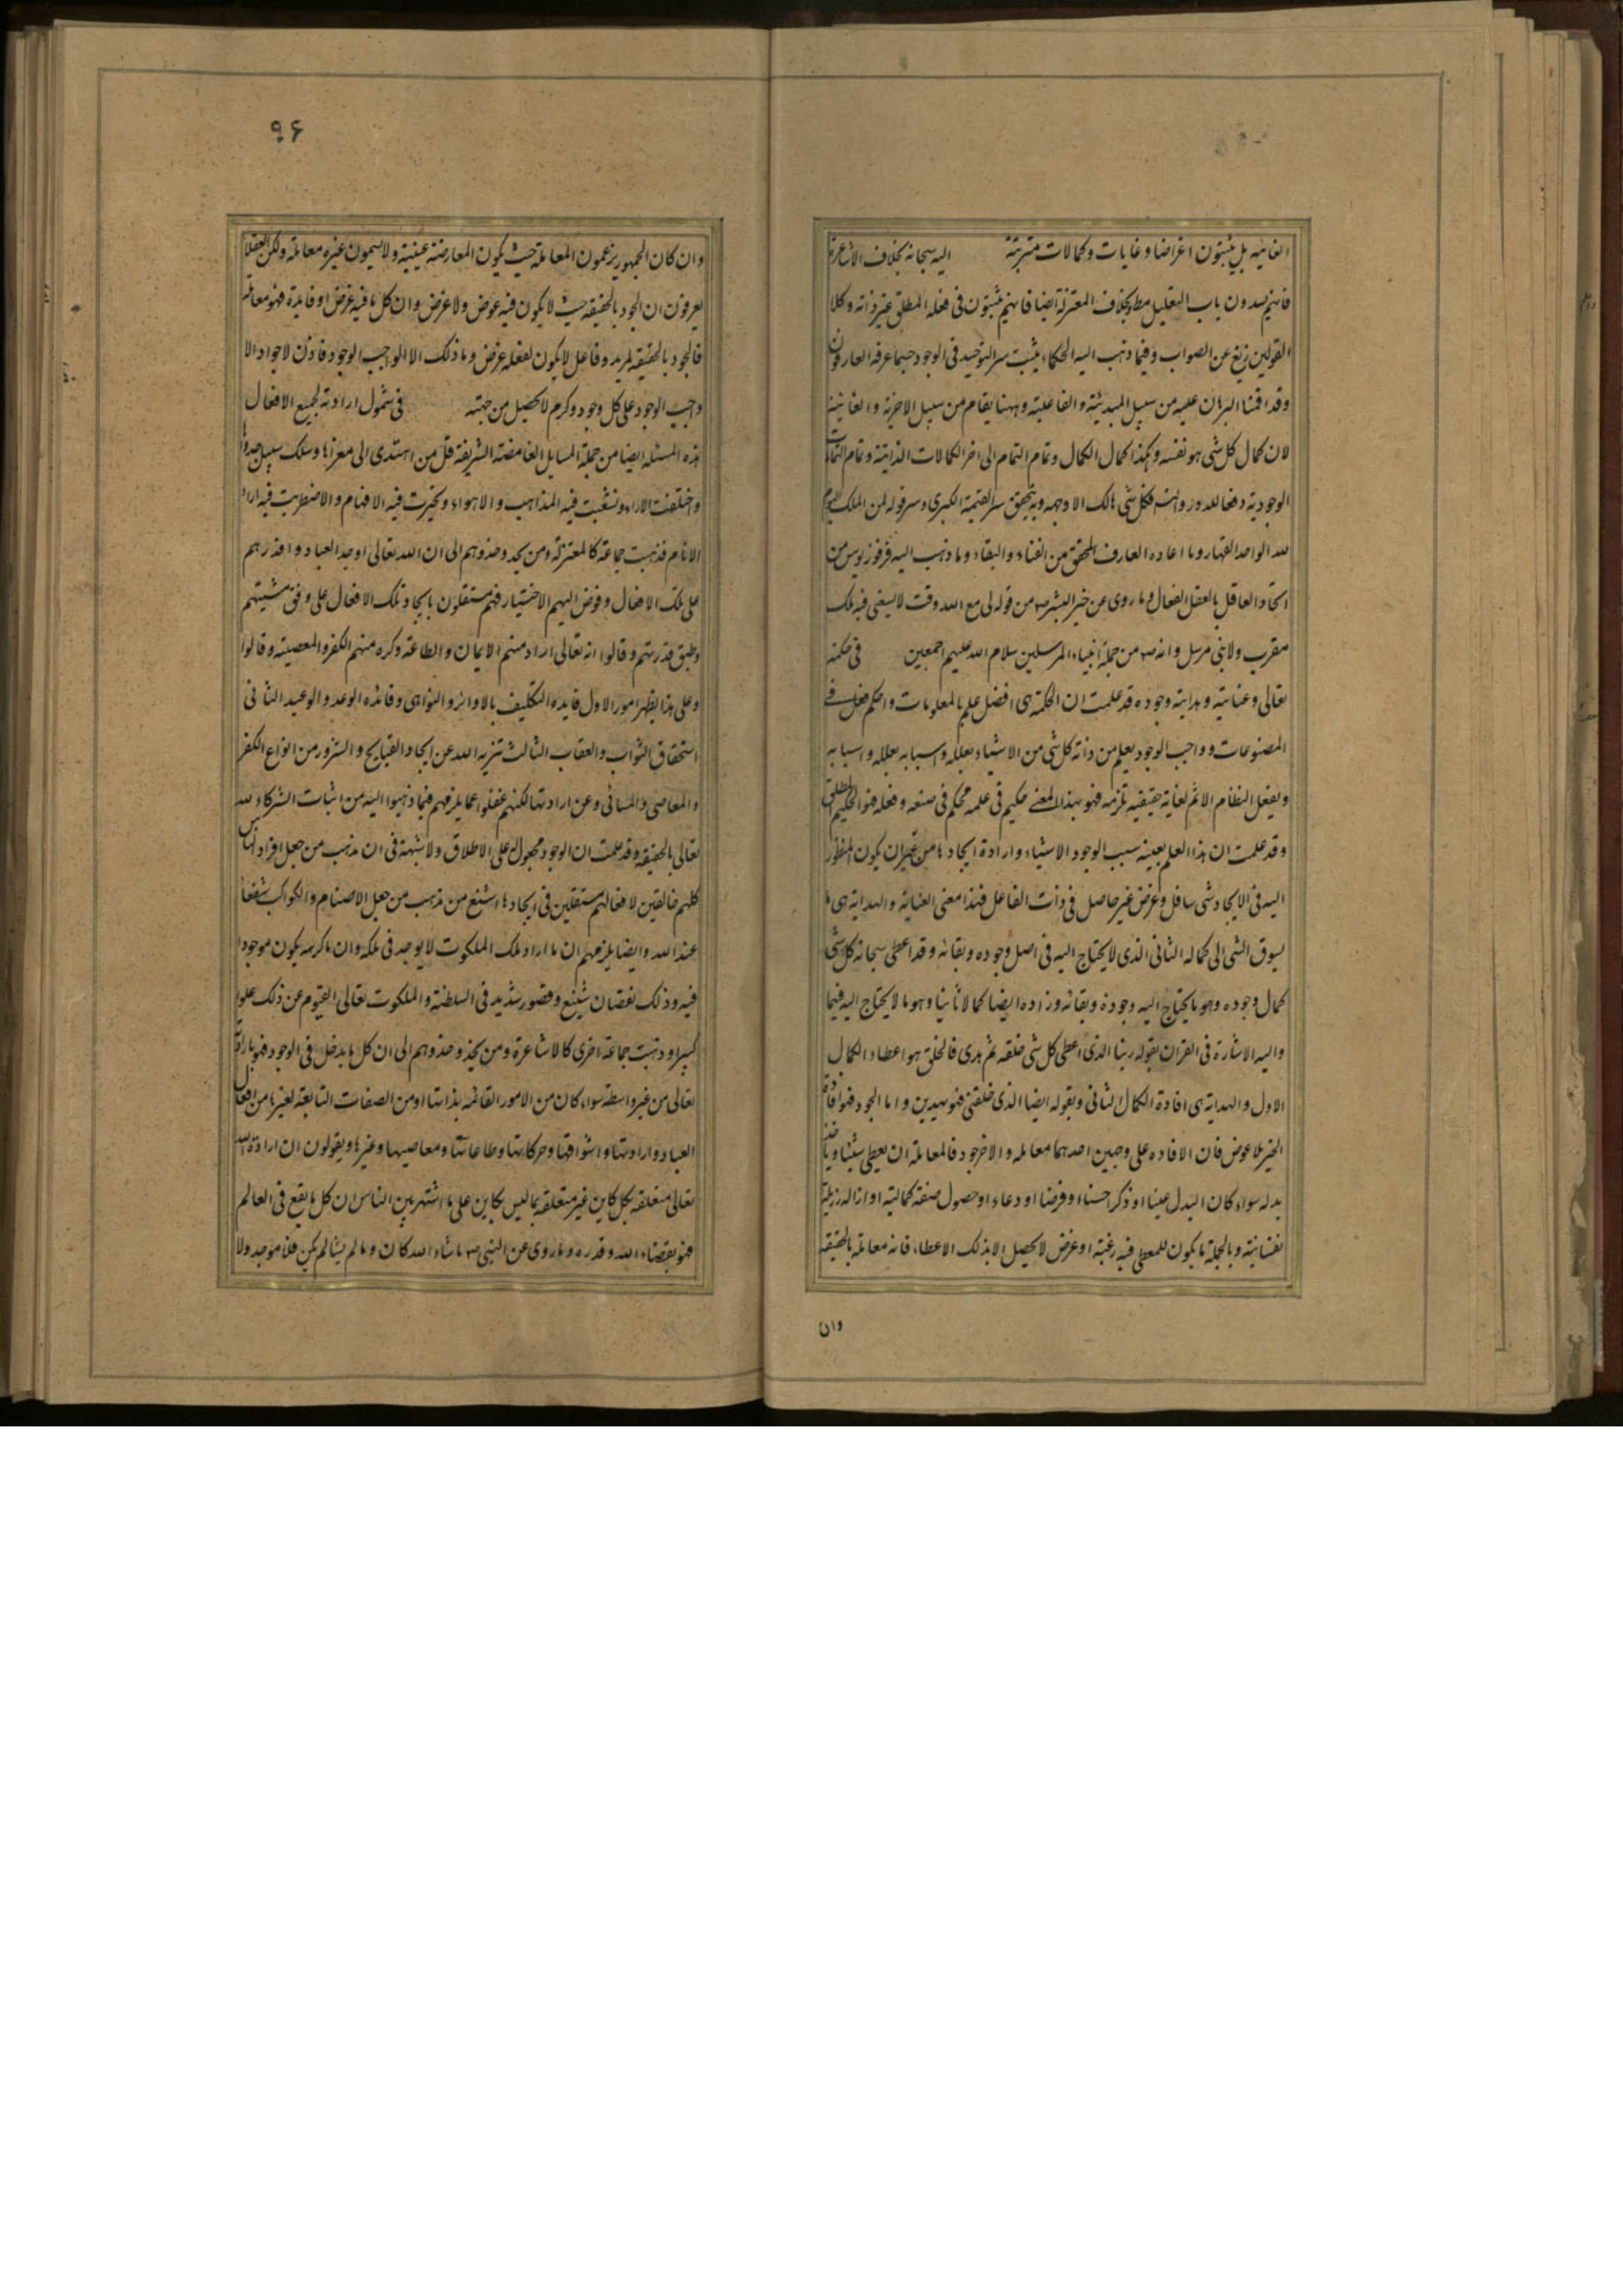 الغائیه بل یثبتون اغراضا و غایات و کمالات مترتبة الیه سبحانه بخلاف الاشاعرة
فانهم یسدون باب التعلیل مط وبخلاف المعتزلة ایضا فانهم یثبتون فی فعله المطلق غیر ذاته و کلا
القولین زیغ عن الصواب و فیما ذهب الیه الحکماء یثبت سر التوحید فی الوجود حسبما عرفه العارفون
وقد اقمنا البرهان علیه من سبیل المبدئیة و الفاعلیة وههنا یقام من سبیل الاخریة و الغائیة
لان کمال کل شی هو نفسه و هکذا کمال الکمال و تمام التمام الی اخر الکمالات الذاتیة و تمام التمامات
الوجودیة دفعا للدور والتس فکل شی هالک الا وجهه وبه یتحقق سر القیمة الکبری و سر قوله لمن الملک الیوم
لله الواحد القهار وما اعاده العارف المحقق من الفناء والبقاء وما ذهب الیه فرفوریوس من
اتحاد العاقل بالعقل الفعال وما روی عن خیر البشر ص من قوله لی مع الله وقت لا یسعنی فیه ملک
مقرب ولا نبی مرسل وانه ص من جملة انبیاء المرسلین سلام الله علیهم اجمعین فی حکمته
تعالی وعنایته وهدایته وجوده قد علمت ان الحکمة هی افضل علم بالمعلومات واحکم فعل فی
المصنوعات وواجب الوجود یعلم من ذاته کل شی من الاشیاء بعلله واسبابه بعلله واسبابه
ویفعل النظام الاتم لغایة حقیقیه تلزمه فهو بهذا المعنی حکیم فی علمه محکم فی صنعه وفعله فهو الحکیم المطلق
وقد علمت ان هذا العلم بعینه سبب الوجود الاشیاء وارادة ایجادها من غیر ان یکون المنظور
الیه فی الایجاد شی سافل وغرض غیر حاصل فی ذات الفاعل فهذا معنی العنایة والهدایة هی ما
یسوق الشی الی کماله الثانی الذی لا یحتاج الیه فی اصل وجوده وبقائه وقد اعطی سبحانه کل شی
کمال وجوده وهو ما یحتاج الیه وجوده وبقائه وزاده ایضا کمالا ثانیا وهو ما لا یحتاج الیه فیهما
والیه الاشارة فی القران بقوله ربنا الذی اعطی کل شی خلقه ثم هدی فالخلق هو اعطاء الکمال
الاول والهدایة هی افادة الکمال الثانی وبقوله ایضا الذی خلقنی فهو یهدین واما الجود فهو افادة
الخیر بلا عوض فان الافاده علی وجهین احدهما معامله والاخر جود فالمعاملة ان یعطی شیئا ویاخذ
بدله سواء کان البدل عینا او ذکرا حسنا او فرضا او دعاء او حصول صفة کمالیة او ازاله رزیلة
نفسانیة وبالجملة ما یکون للمعطی فیه رغبة او غرض لا یحصل الا بذلک الاعطاء فانه معاملة بالحقیقة
وان
۹۶
وان کان الجمهور یزعمون المعاملة حیث یکون المعارضة عینیة ولا یسمون غیره معاملة ولکن العقلا
یعرفون ان الجود بالحقیقه حیث لا یکون فیه عوض ولا غرض وان کل ما فیه غرض او فایدة فهو معامله
فالجود بالحقیقه لمرید وفاعل لا یکون لفعله غرض وما ذلک الا الواجب الوجود فاذن لا جواد الا
واجب الوجود علی کل وجود وکرم لا یحصل من جهته فی شمول ارادته لجمیع الافعال
هذه المسئله ایضا من جملة المسایل الغامضة الشریفة قل من اهتدی الی مغزاها وسلک سبیل جدواها
واختلفت الاراء وتشعبت فیه المذاهب والاهواء وتحیرت فیه الافهام والاضطربت فیه اراء
الانام فذهبت جماعة کالمعتزلة ومن یحد وحذوهم الی ان الله تعالی اوجد العباد واقدرهم
علی تلک الافعال وفوض الیهم الاختیار فهم مستقلون بایجاد تلک الافعال علی وفق مشیتهم
وطبق قدرتهم وقالوا انه تعالی اراد منهم الایمان والطاعة وکره منهم الکفر والمعصیة وقالوا
وعلی هذا یظهر امور الاول فایده التکلیف بالاوامر والنواهی وفائده الوعد والوعید الثانی
استحقاق الثواب والعقاب الثالث تنزیه الله عن ایجاد القبایح والشرور من انواع الکفر
والمعاصی والمسائی وعن ارادتها لکنهم غفلوا عما یلزمهم فیما ذهبوا الیه من اثبات الشرکاء لله
تعالی بالحقیقه وقد علمت ان الوجود مجعول له علی الاطلاق ولا شبهة فی ان مذهب من جعل افراد الناس
کلهم خالقین لافعالهم مستقلین فی ایجادها اشنع من مذهب من جعل الاصنام والکواکب شفعاء
عند الله وایضا یلزمهم ان ما اراد ملک الملکوت لا یوجد فی ملکه وان ما کرهه یکون موجودا
فیه وذلک نقصان شنیع وقصور شدید فی السلطنة والملکوت تعالی القیوم عن ذلک علوا
کبیرا وذهبت جماعة اخری کالاشاعرة ومن یحذو حذوهم الی ان کل ما یدخل فی الوجود فهو بارادته
تعالی من غیر واسطه سواء کان من الامور القائمه بذاتها او من الصفات التابعة لغیرها من افعال
العباد وارادتها واشواقها وحرکاتها وطاعاتها ومعاصیها وغیرها ویقولون ان ارادة الله
تعالی متعلقه بکل کاین غیر متعلقه بما لیس بکاین علی ما اشتهر بین الناس ان کل ما یقع فی العالم
فهو بقضاء الله وقدره وما روی عن النبی ص ما شاء الله کان وما لم یشا لم یکن فلا موجد ولا